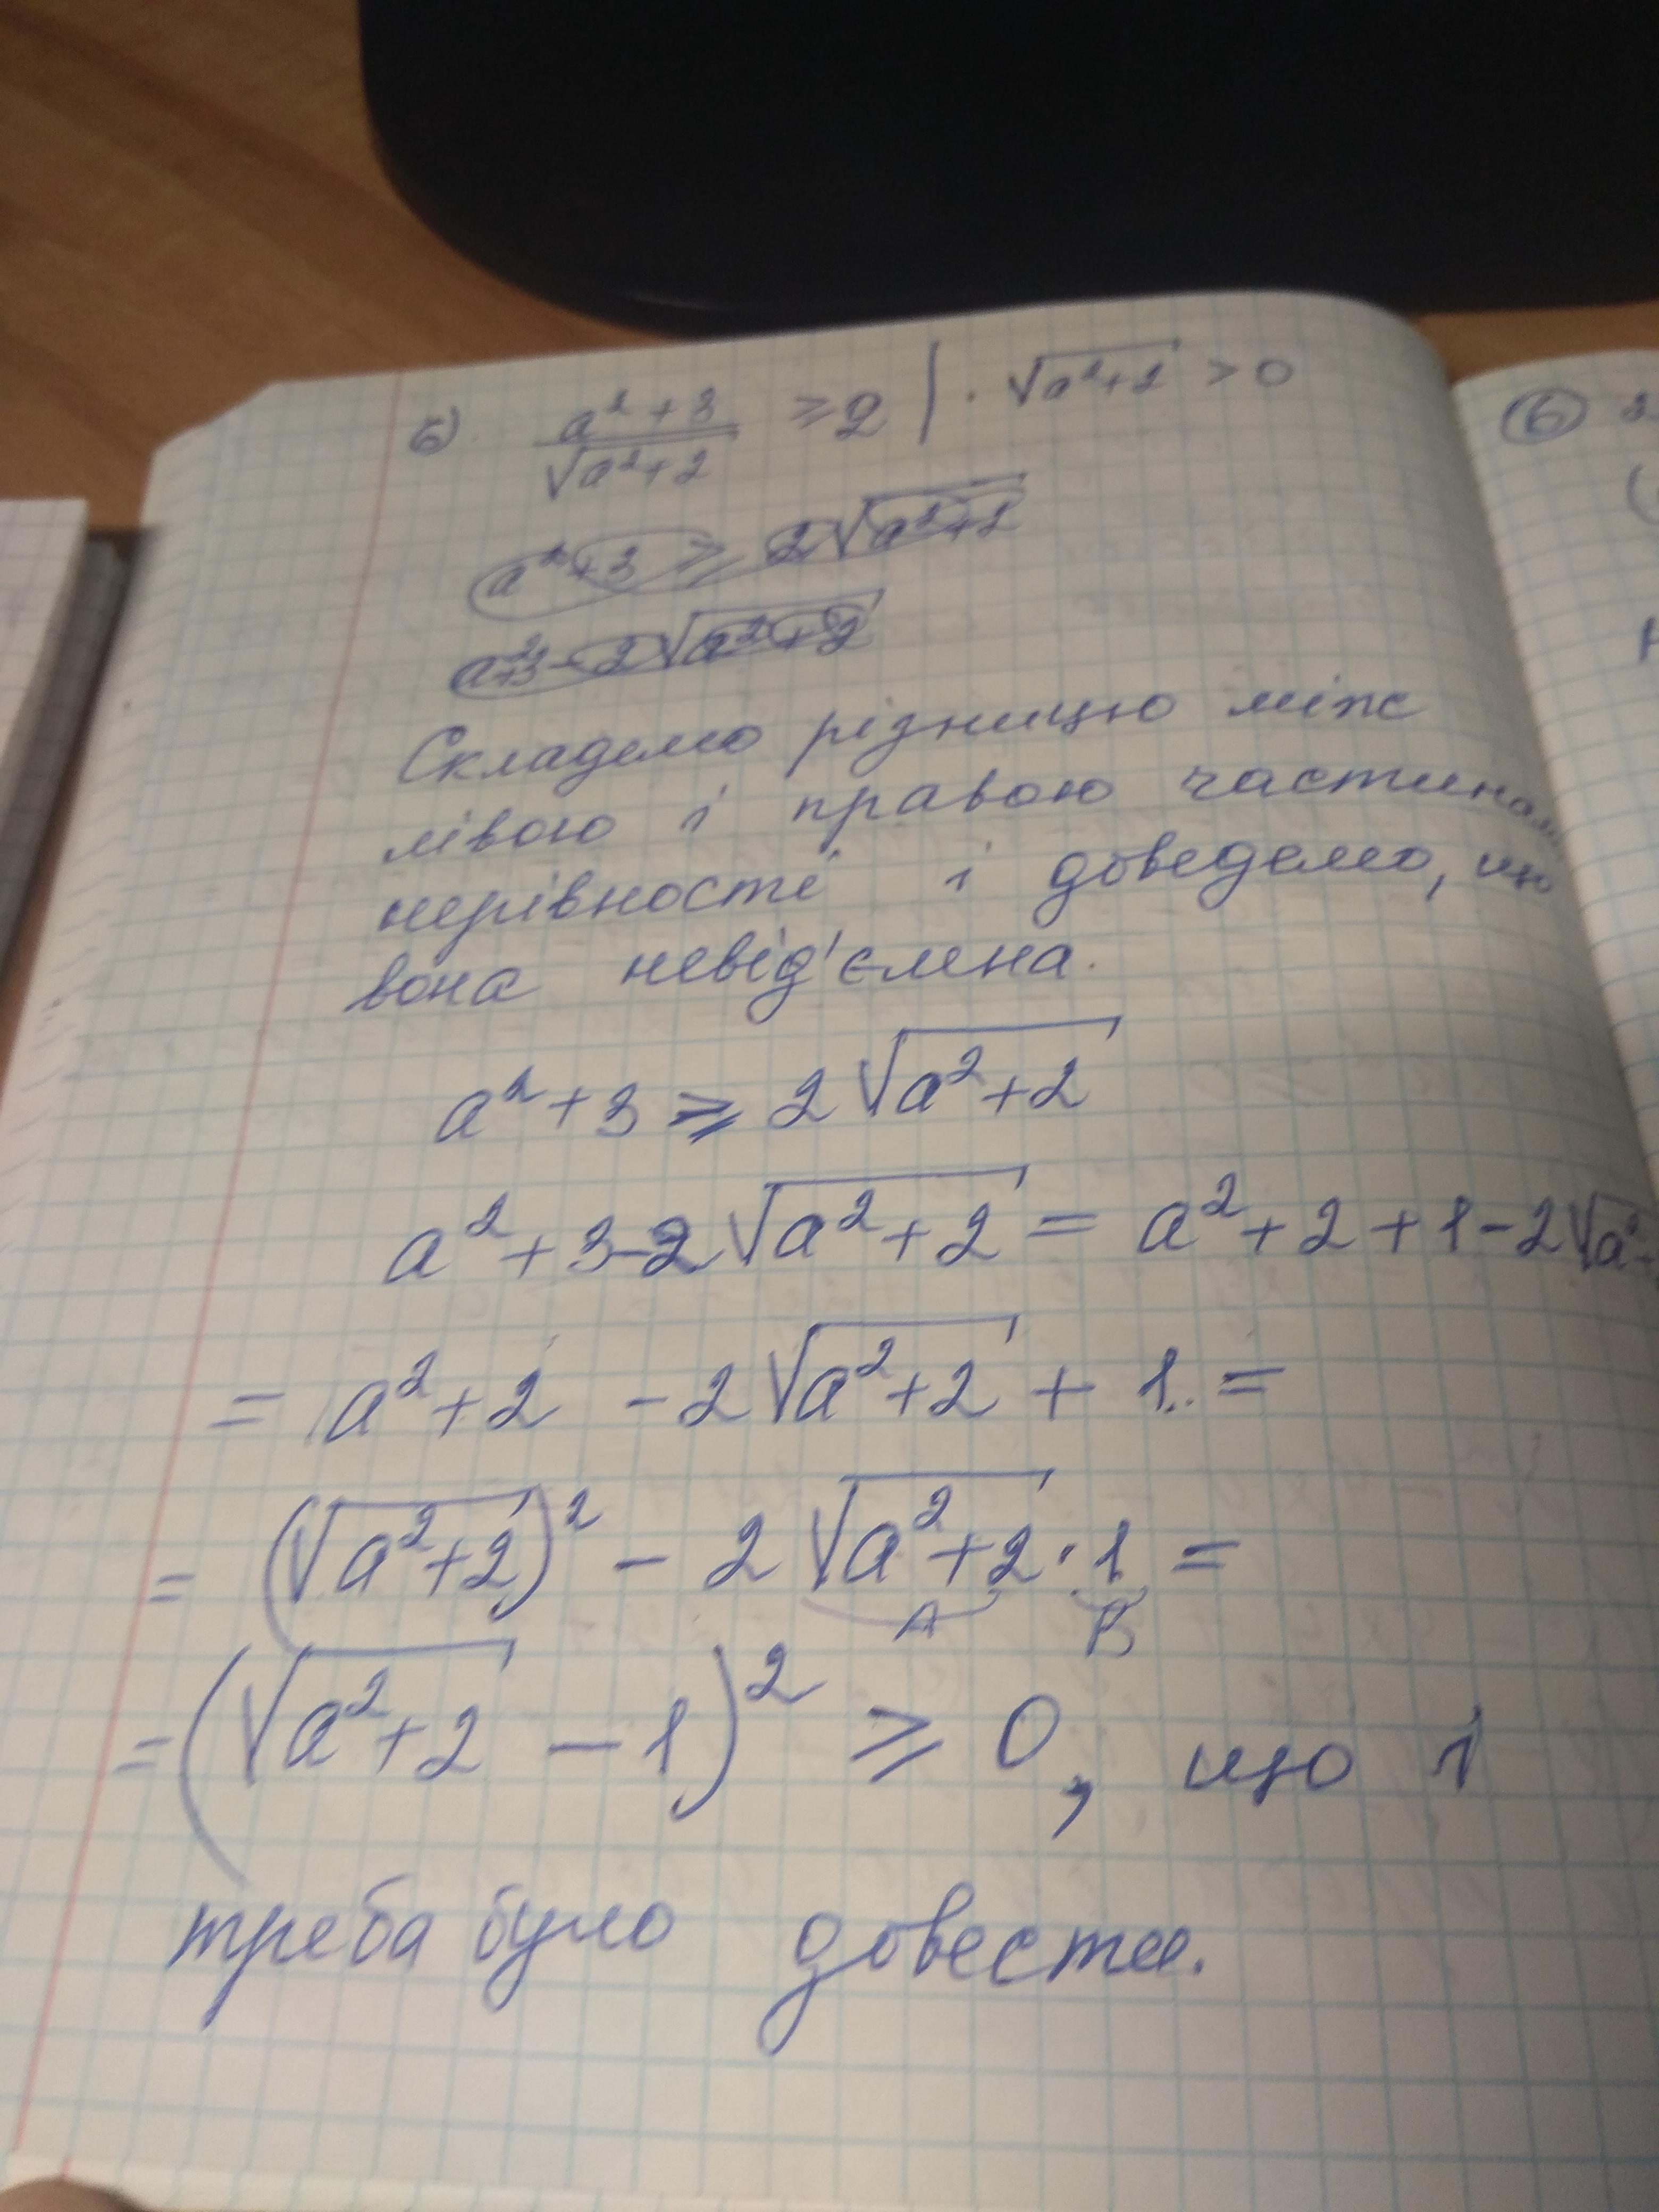 б) (a²+3)/√(a²+2) ≥ 2 | · √(a²+2) > 0
a²+3 ≥ 2√(a²+2
a²+3-2√(a²+2)
Складемо різницю між
лівою і правою частинами
нерівності і доведемо, що
вона невід'ємна.
a²+3 ≥ 2√(a²+2)
a²+3-2√(a²+2) = a²+2+1-2√a²
= a²+2 -2√(a²+2) + 1 =
= (√(a²+2))² - 2√(a²+2) · 1 =
A B
= (√(a²+2) - 1)² ≥ 0, що і
треба було довести.
6